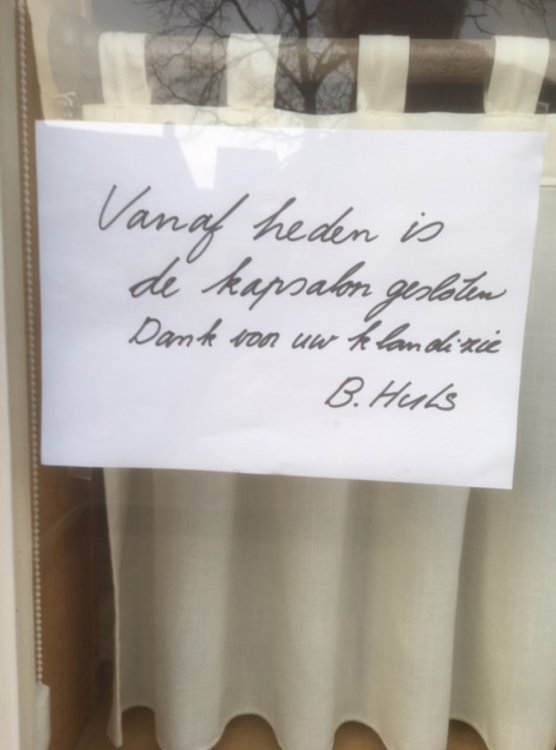 Vanaf heden is
de kapsalon gesloten
Dank voor uw klandizie
B. Huls